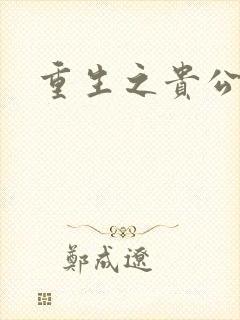 重生之貴公
鄭成遼